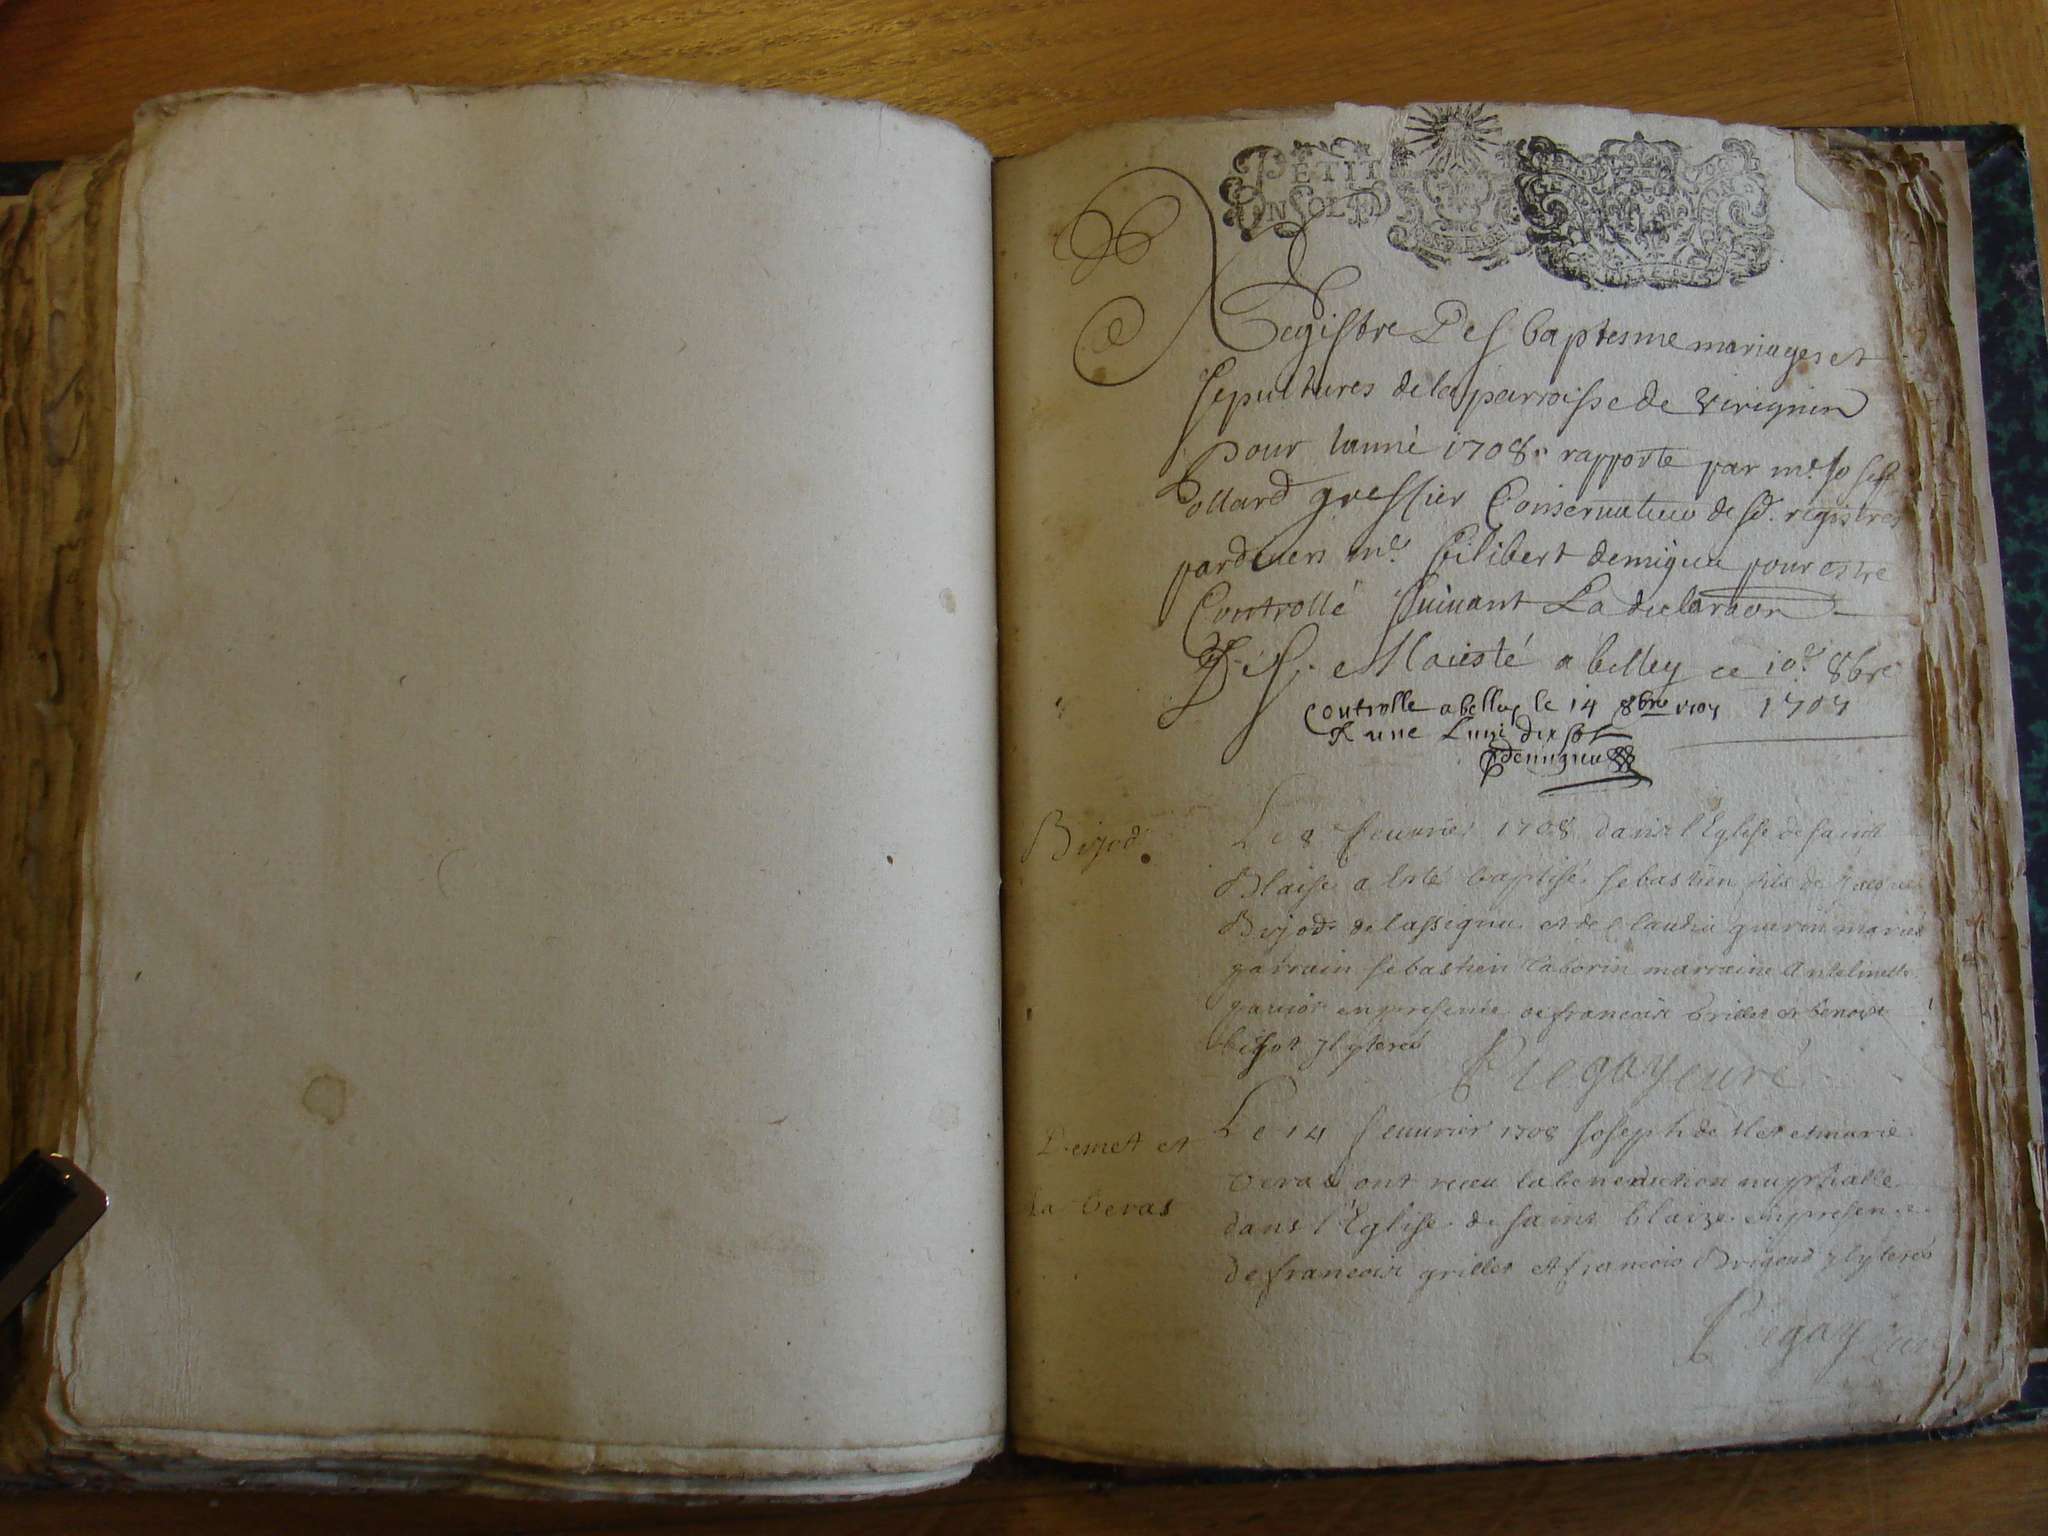 PETIT
UN SOL
Registre Des baptesme mariages et
sepultures de la parroisse de virignin
pour lanné 1708. rapporte par me Joseph
ollard greffier Conservateur de sd. registres
pardeuers me filibert demigieu pour estre
Controllé suiuant La declaraon
De sa Maiesté a belley ce 10e 8bre
1707
Controlle a belley le 14 8bre 1707
R une Liure dix sol
demigieu
Bijod
Le 8 feuurier 1708 dans l'Eglise de saint
Blaise a esté baptisé sebastien fils de
Bijod de lassignieu et de Claudia guerin mariés
parrain sebastien taborin marraine Antelinette
en presence de francois Grillet et benoist
bigot Illyteres
Piegay curé
Demet et
La Veras
Le 14 feuurier 1708 Joseph de Met et marie
Veras ont receu la benediction nuptialle
dans l'Eglise de saint blaize en presence
de francois grillet et francois Brigoud Illyteres
Piegay Curé